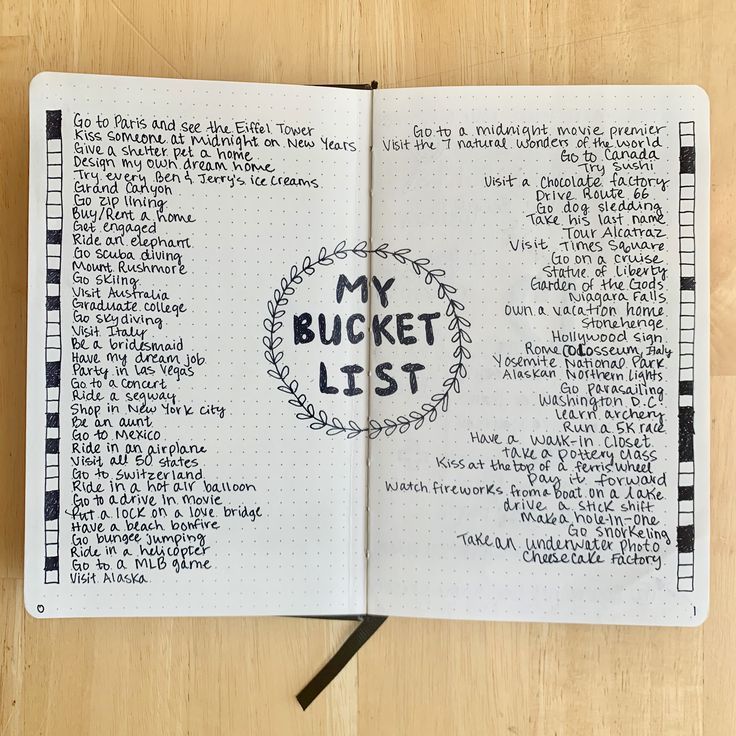 Go to Paris and see the Eiffel Tower
Kiss someone at midnight on New Years
Give a shelter pet a home
Design my own dream home
Try every Ben & Jerry's ice creams
Grand Canyon
Go zip lining
Buy/Rent a home
Get engaged
Ride an elephant
Go scuba diving
Mount Rushmore
Go skiing
Visit Australia
Graduate college
Go skydiving
Visit Italy
Be a bridesmaid
Have my dream job
Party in Las Vegas
Go to a concert
Ride a segway
Shop in New York city
Be an aunt
Go to Mexico
Ride in an airplane
Visit all 50 states
Go to Switzerland
Ride in a hot air balloon
Go to a drive in movie
Put a lock on a love bridge
Have a beach bonfire
Go bungee jumping
Ride in a helicopter
Go to a MLB game
Visit Alaska
0
MY
BUCKET
LIST
Go to a midnight movie premier
Visit the 7 natural wonders of the world
Go to Canada
Try Sushi
Visit a chocolate factory
Drive Route 66
Go dog sledding
Take his last name
Tour Alcatraz
Visit Times Square
Go on a cruise
Statue of Liberty
Garden of the Gods
Niagara Falls
Own a vacation home
Stonehenge
Hollywood sign
Rome Colosseum, Italy
Yosemite National Park
Alaskan Northern Lights
Go parasailing
Washington D.C.
Learn archery
Run a 5K race
Have a walk-in closet
take a pottery class
Kiss at the top of a ferris wheel
Pay it forward
Watch fireworks from a boat on a lake
drive a stick shift
Make a hole-in-one
Go snorkeling
Take an underwater photo
Cheesecake Factory
1